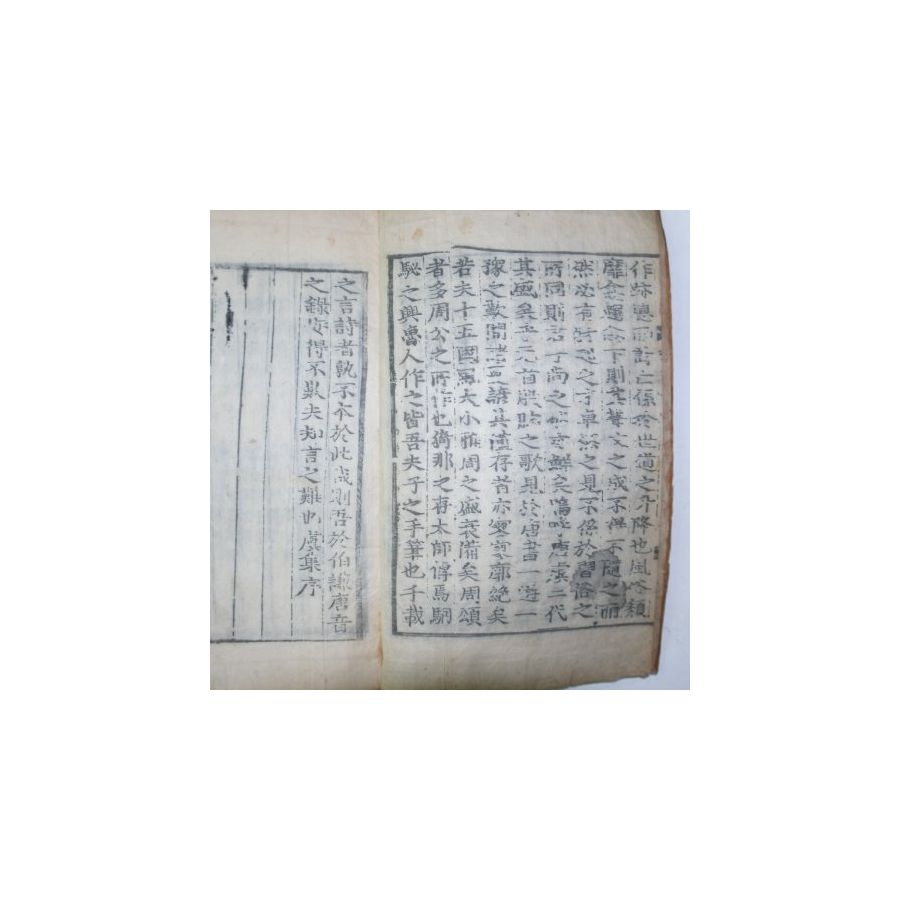 作跡其所言亡係於世道之升降也風俗頹
靡愈趨愈下則其聲文之成不得不隨之而
然必有特起之才卓然之見不係於習俗之
所同則君子尚之然亦鮮矣嗚呼唐虞三代
其盛矣乎元首股肱之歌見於虞書一遊一
豫之歌聞諸夏諺其僅存者亦寥寥廓絶矣
若夫十五國風大小雅周之盛衰備矣周頌
者多周公之所作也猗那之存太師得焉駉
駜之興魯人作之皆吾夫子之手筆也千載
之言詩者孰不本於此哉則吾於伯謙唐音
之錄安得不歎夫知言之難也虞集序